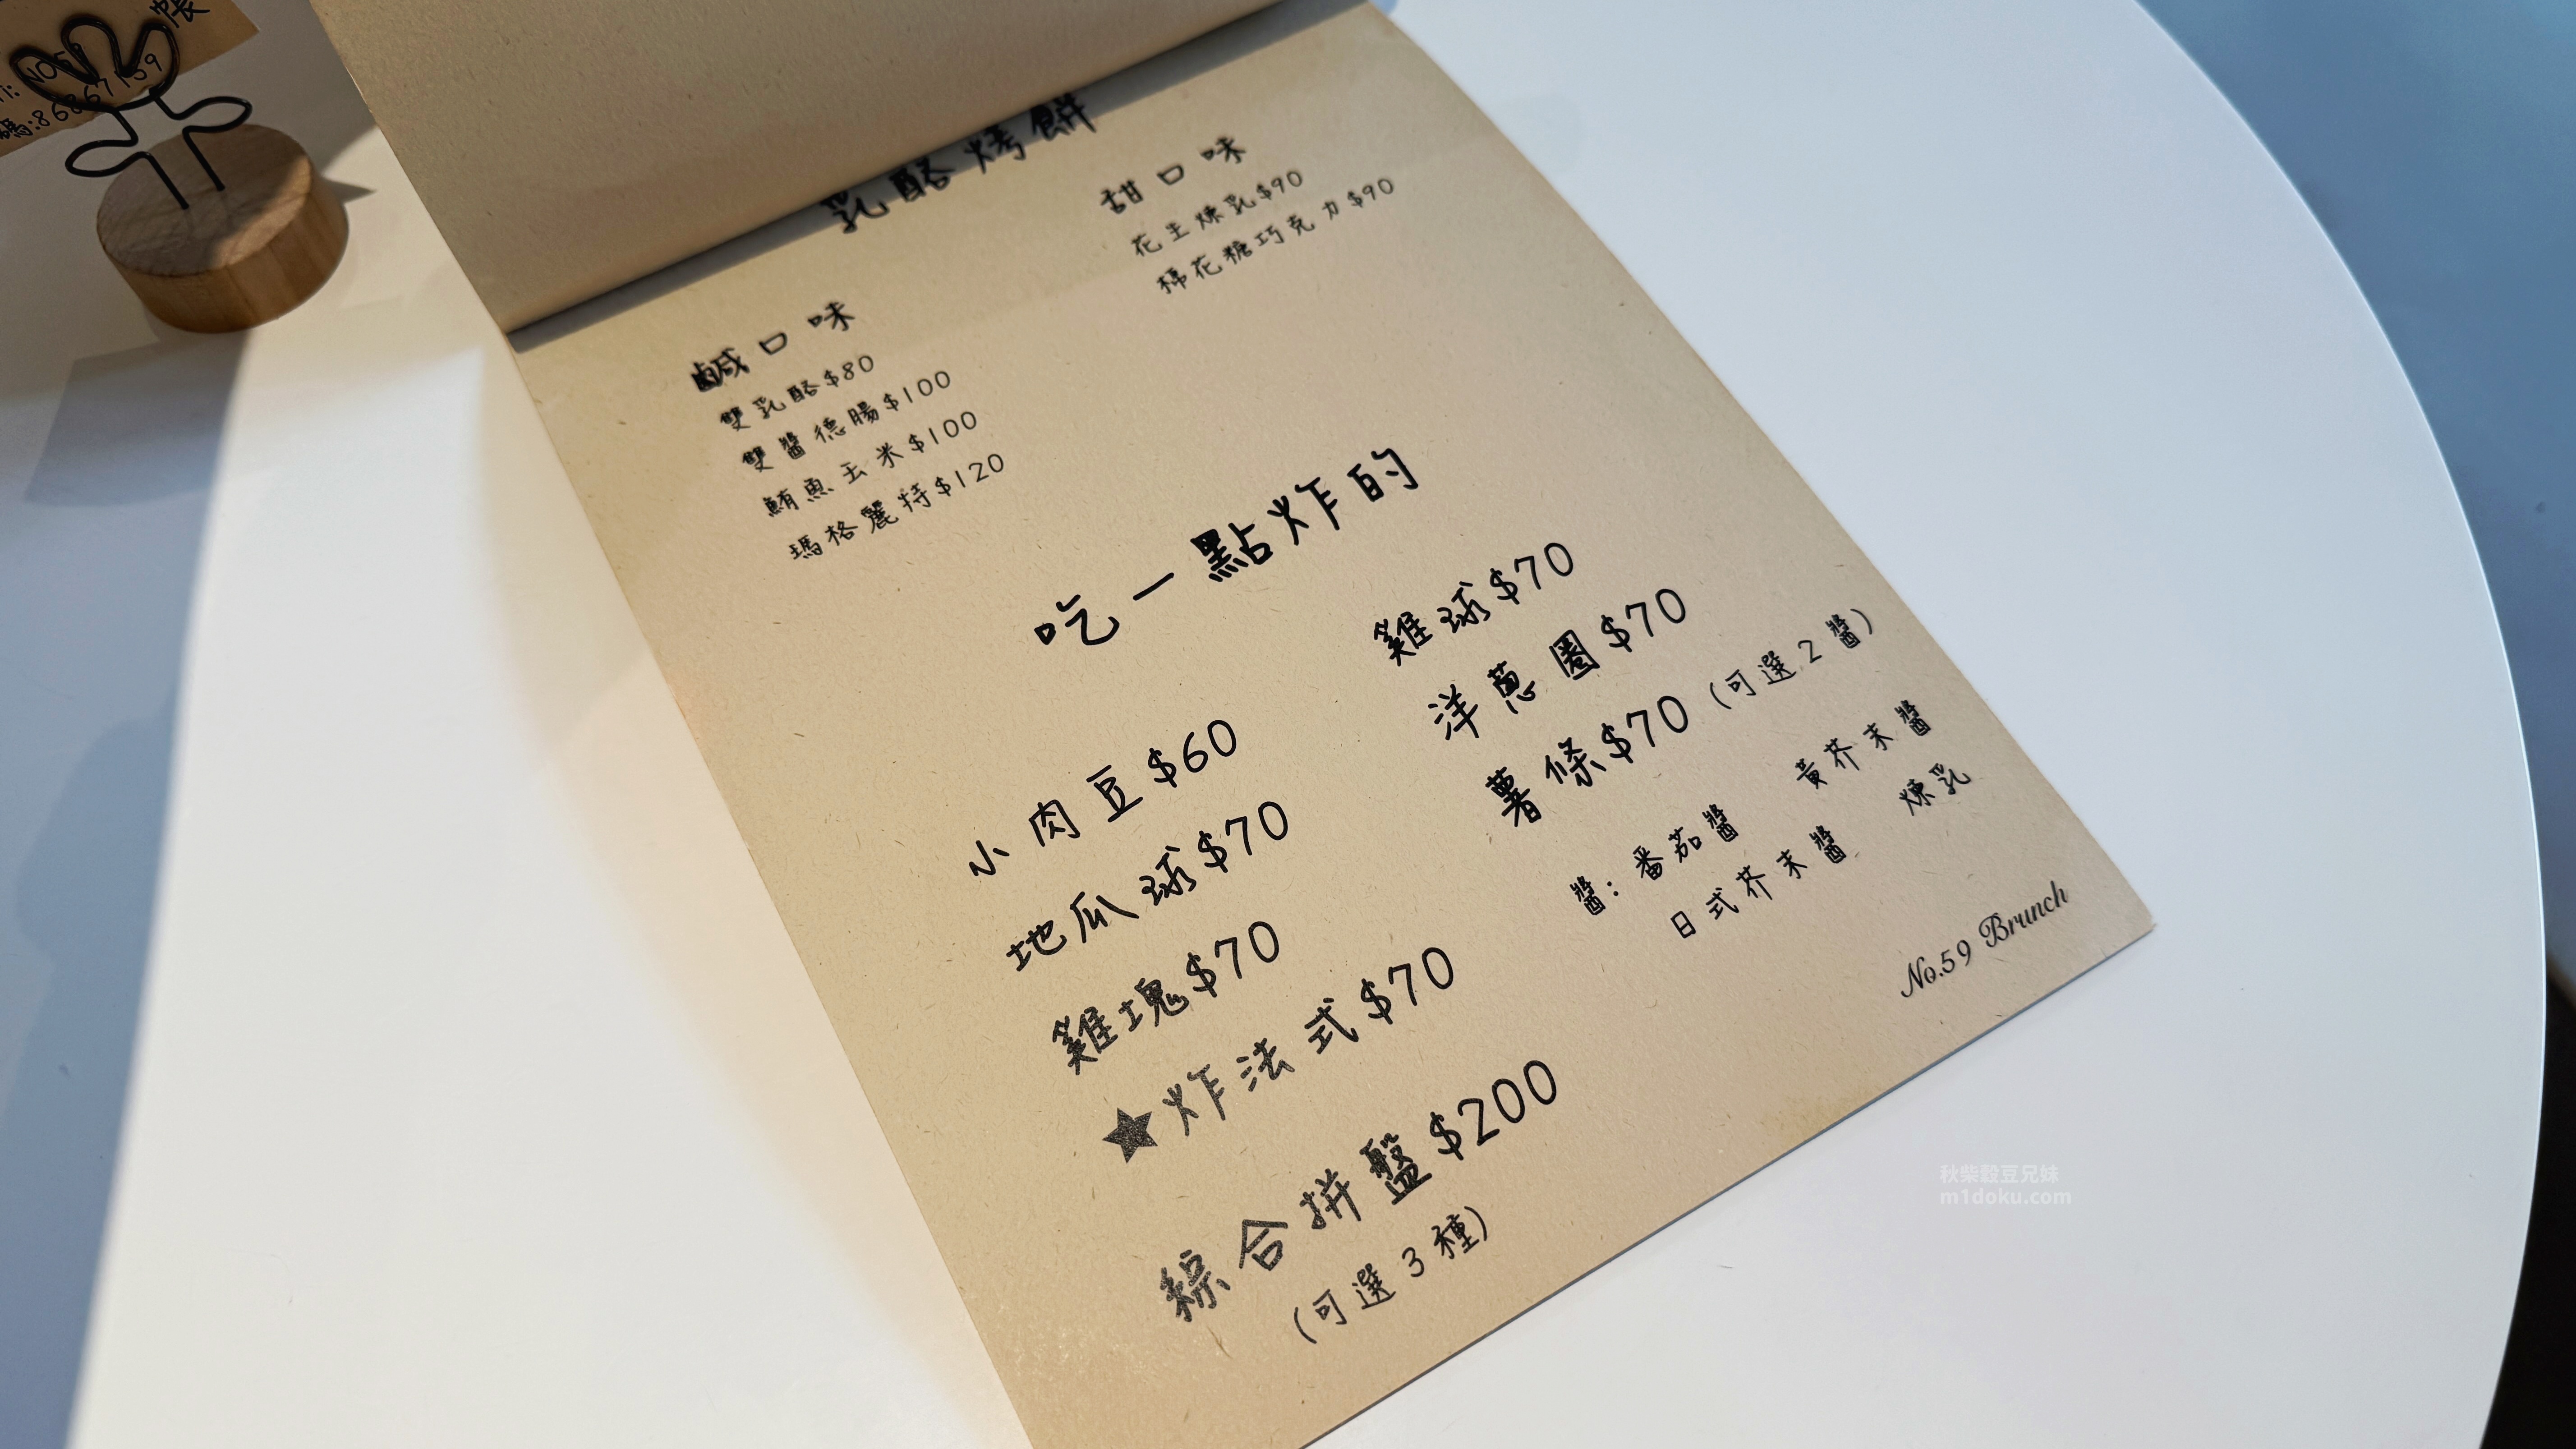 帳
NO.59
碼:86867159
乳酪烤餅
鹹口味
雙乳酪$80
雙醬德腸$100
鮪魚玉米$100
瑪格麗特$120
甜口味
花生煉乳$90
棉花糖巧克力$90
吃一點炸的
小肉豆$60
地瓜球$70
雞塊$70
★炸法式$70
綜合拼盤$200
(可選3種)
雞球$70
洋蔥圈$70
薯條$70(可選2醬)
醬:番茄醬 黃芥末醬
日式芥末醬 煉乳
No.59 Brunch
秋柴穀豆兄妹
m1doku.com